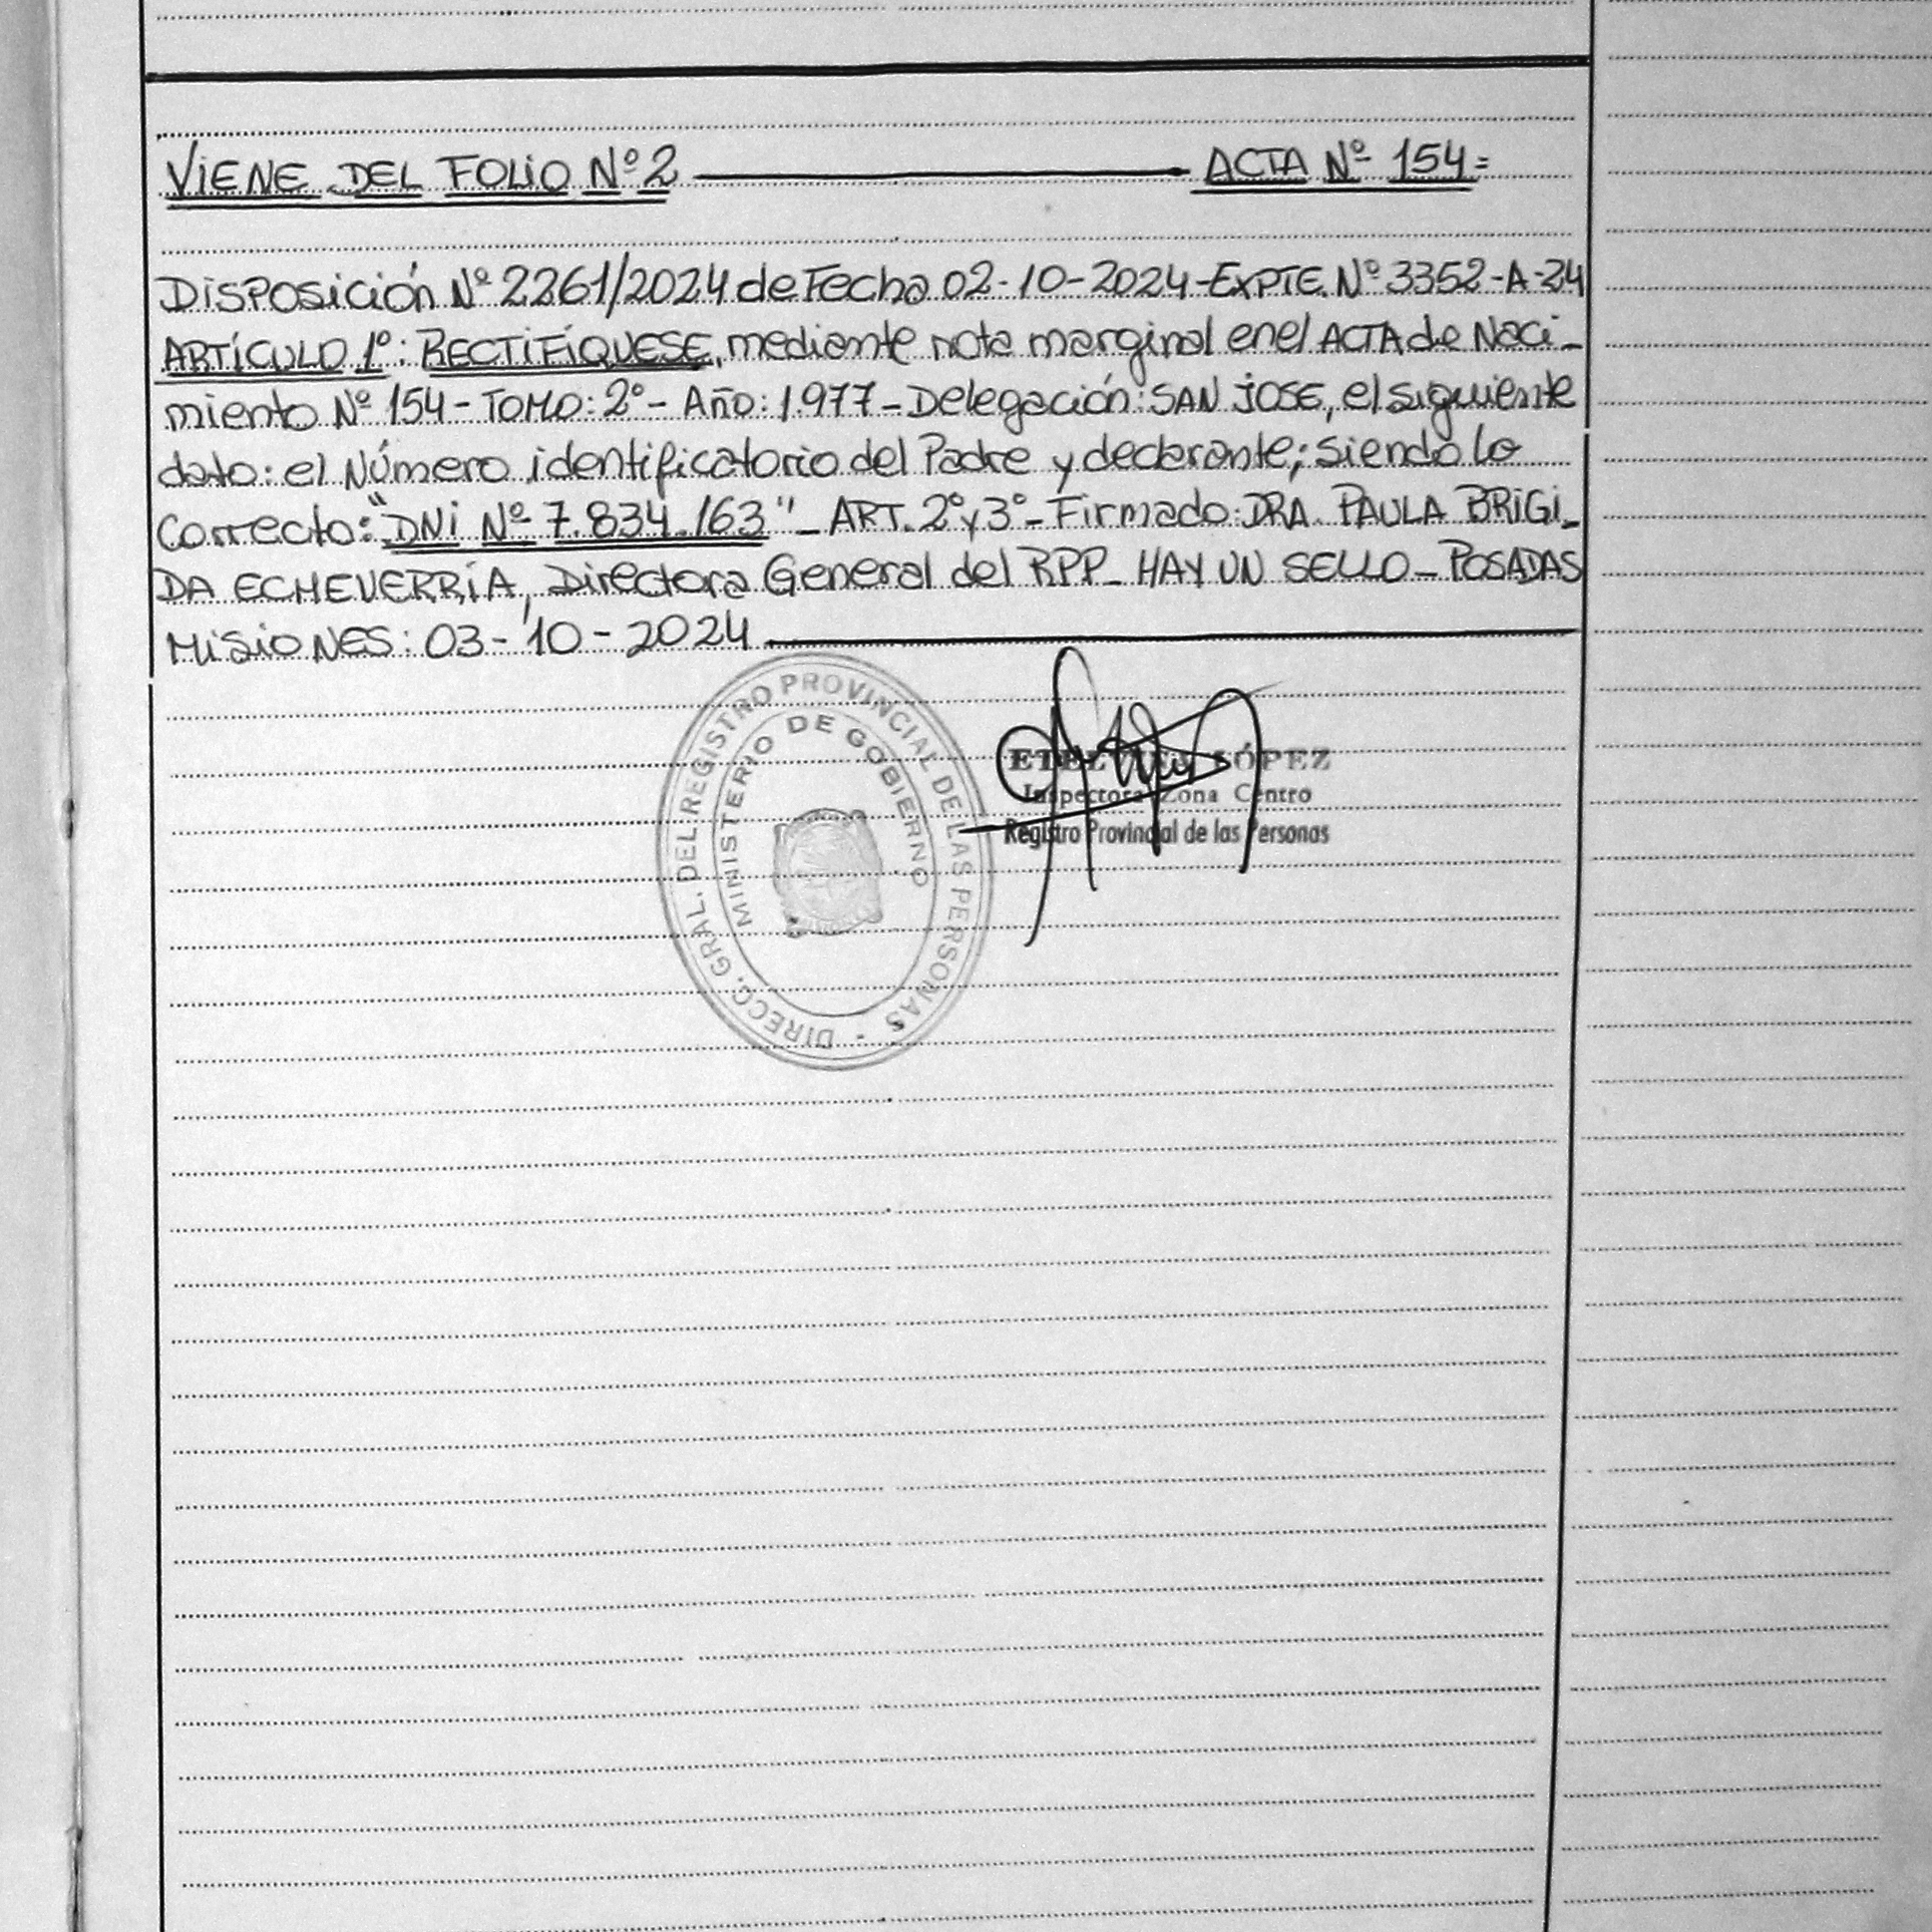 VIENE DEL FOLIO Nº 2 ACTA Nº 154=
DISPOSICIÓN Nº 2261/2024 de Fecha 02-10-2024-EXPTE. Nº 3352-A-24
ARTÍCULO 1º: RECTIFÍQUESE, mediante nota marginal en el ACTA de Naci-
miento Nº 154 - TOMO: 2º - Año: 1.977 - Delegación: SAN JOSE, el siguiente
dato: el Número identificatorio del Padre y declarante; siendo lo
Correcto: "DNI Nº 7.834.163" - ART. 2º y 3º - Firmado: DRA. PAULA BRIGI-
DA ECHEVERRÍA, Directora General del RPP - HAY UN SELLO - POSADAS
MISIONES: 03-10-2024
DIRECC. GRAL. DEL REGISTRO PROVINCIAL DE LAS PERSONAS -
MINISTERIO DE GOBIERNO
LÓPEZ
Inspectora Zona Centro
Registro Provincial de las Personas